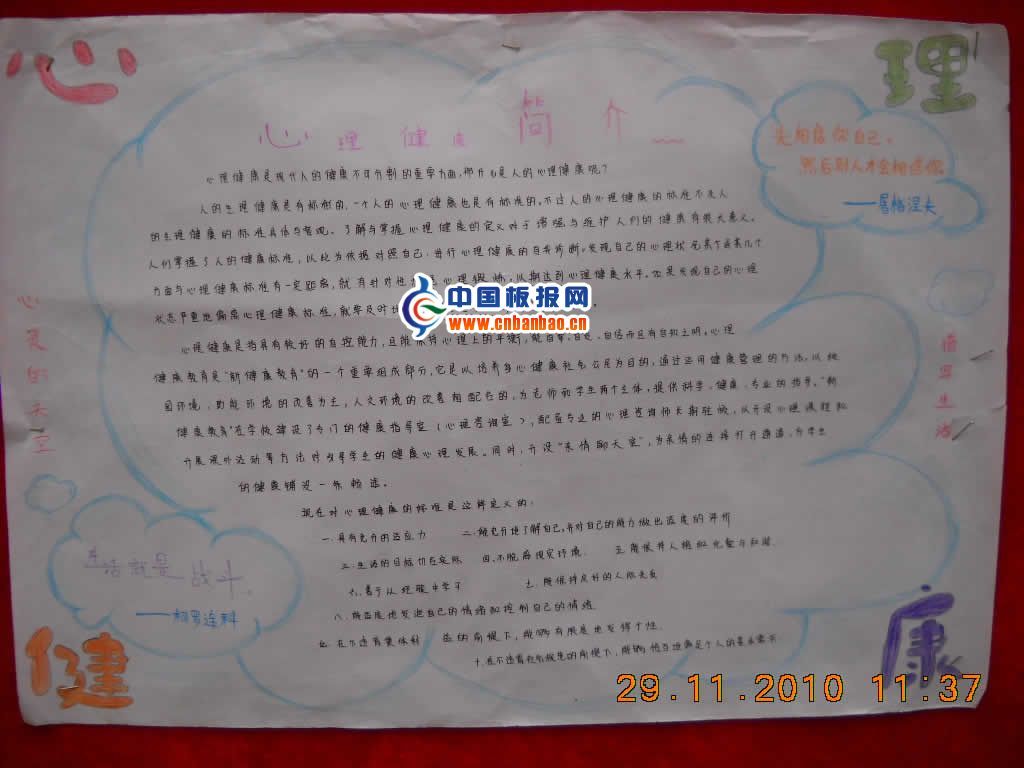 心
理
心理健康简介
先相信你自己,
然后别人才会相信你
——屠格涅夫
心理健康是现代人的健康不可分割的重要方面,那什么是人的心理健康呢?
人的生理健康是有标准的,一个人的心理健康也是有标准的。不过人的心理健康的标准不及人
的生理健康的标准具体与客观。了解与掌握心理健康的定义对于增强与维护人们的健康有很大意义。
人们掌握了人的健康标准,以此为依据对照自己,进行心理健康的自我诊断。发现自己的心理状况某个或某几个
方面与心理健康标准有一定距离,就有针对性 心理锻炼,以期达到心理健康水平。如果发现自己的心理
状态严重地偏离心理健康标准,就要及时
中国板报网
www.cnbanbao.cn
心理健康是指具有较好的自控能力,且能保持心理上的平衡,能自尊、自爱、自信而且有自知之明。心理
健康教育是“新健康教育”的一个重要组成部分,它是以培养身心健康社会公民为目的,通过运用健康管理的方法,以校
园环境、功能环境的改善为主,人文环境的改善相配合的,为老师和学生两个主体,提供科学、健康、专业的指导。“新
健康教育”在学校建设了专门的健康指导室(心理咨询室),配备专业的心理咨询师长期驻校,以开设心理课程和
开展课外活动等方法对引导学生的健康心理发展。同时,开设“亲情聊天室”,为亲情的连接打开通道,为学生
的健康铺设一条畅道。
心灵的天空
谱写生活
现在对心理健康的标准是这样定义的:
一.具有充分的适应力 二.能充分地了解自己,并对自己的能力做出适度的评价
三.生活的目标切合实际 四.不脱离现实环境. 五.能保持人格的完整与和谐.
六.善于从经验中学习 七.能保持良好的人际关系
八.能适度地发泄自己的情绪和控制自己的情绪.
九.在不违背集体利 益的前提下,能够有限度地发挥个性.
十.在不违背社会规范的前提下,能够恰当地满足个人的基本需求
生活就是战斗.
——柯罗连科
健
康
29.11.2010 11:37